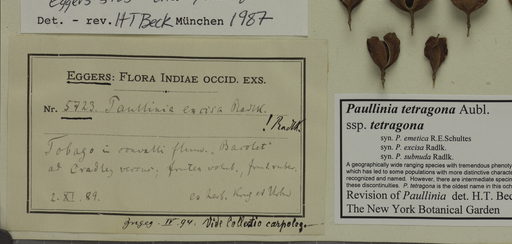 Eggers 5723
Det. - rev. HT Beck München 1987
EGGERS: FLORA INDIAE OCCID. EXS.
Nr. 5723. Paullinia excisa Radlk.
! Radlk.
Tobago in convalli flum. "Bacolet"
ad Cradley versus; frutex volub., fruct. rubr.
2. XI. 89. ex herb. Krug et Urban
IV. 94. Vide Collectio carpolog.
Paullinia tetragona Aubl.
ssp. tetragona
syn. P. emetica R.E.Schultes
syn. P. excisa Radlk.
syn. P. subnuda Radlk.
A geographically wide ranging species with tremendous phenoty
which has led to some populations with more distinctive character
recognized and named. However, there are intermediate specim
these discontinuities. P. tetragona is the oldest name in this och
Revision of Paullinia det. H.T. Bec
The New York Botanical Garden